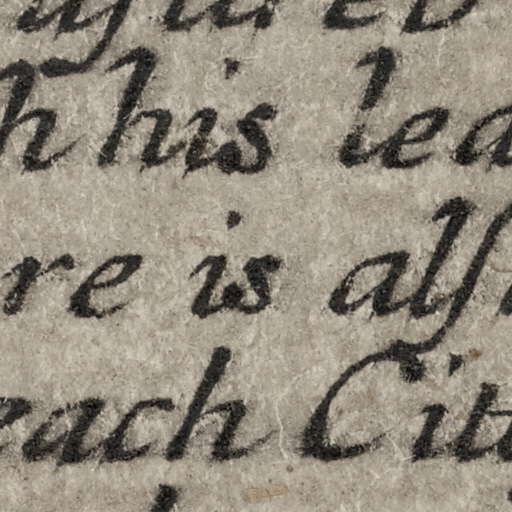 h his lea
re is alſ
each Cit